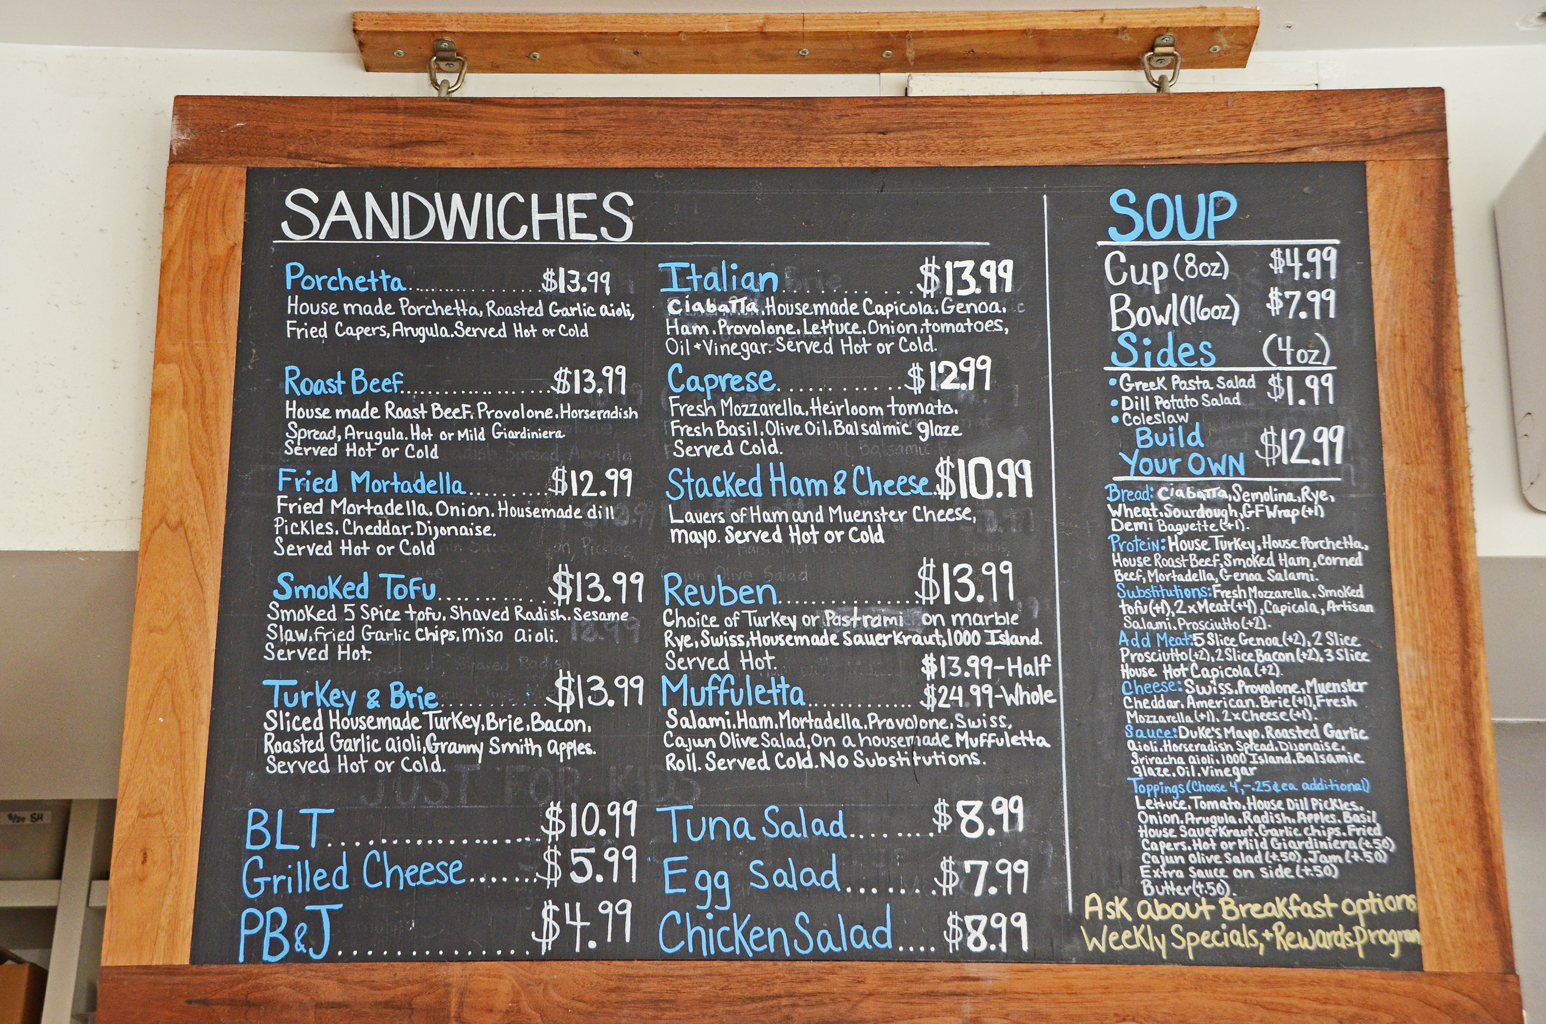 SANDWICHES
Porchetta..................$13.99
House made Porchetta, Roasted Garlic aioli,
Fried Capers, Arugula. Served Hot or Cold
Roast Beef..................$13.99
House made Roast Beef, Provolone, Horseradish
Spread, Arugula. Hot or Mild Giardiniera
Served Hot or Cold
Fried Mortadella..........$12.99
Fried Mortadella, Onion, Housemade dill
Pickles, Cheddar, Dijonaise.
Served Hot or Cold
Smoked Tofu..............$13.99
Smoked 5 Spice tofu, Shaved Radish, Sesame
Slaw, fried Garlic Chips, Miso aioli.
Served Hot.
Turkey & Brie..............$13.99
Sliced Housemade Turkey, Brie, Bacon,
Roasted Garlic aioli, Granny Smith apples.
Served Hot or Cold.
JUST FOR KIDS
BLT....................$10.99
Grilled Cheese.......$5.99
PB&J..................$4.99
Italian..................$13.99
Ciabatta, Housemade Capicola, Genoa,
Ham, Provolone, Lettuce, Onion, tomatoes,
Oil + Vinegar. Served Hot or Cold.
Caprese..............$12.99
Fresh Mozzarella, Heirloom tomato,
Fresh Basil, Olive Oil, Balsalmic glaze
Served Cold.
Stacked Ham & Cheese..$10.99
Layers of Ham and Muenster Cheese,
mayo. Served Hot or Cold
Reuben..................$13.99
Choice of Turkey or Pastrami on marble
Rye, Swiss, Housemade Sauerkraut, 1000 Island.
Served Hot.
$13.99-Half
Muffuletta..............$24.99-Whole
Salami, Ham, Mortadella, Provolone, Swiss,
Cajun Olive Salad, On a housemade Muffuletta
Roll. Served Cold. No Substitutions.
Tuna Salad........$8.99
Egg Salad.......$7.99
Chicken Salad....$8.99
SOUP
Cup (8oz) $4.99
Bowl (16oz) $7.99
Sides (4oz)
• Greek Pasta Salad $1.99
• Dill Potato Salad
• Coleslaw
Build
Your Own $12.99
Bread: Ciabatta, Semolina, Rye,
Wheat, Sourdough, GF Wrap (+1)
Demi Baguette (+1).
Protein: House Turkey, House Porchetta,
House Roast Beef, Smoked Ham, Corned
Beef, Mortadella, Genoa Salami.
Substitutions: Fresh Mozzarella, Smoked
tofu (+1), 2x Meat (+4), Capicola, Artisan
Salami, Prosciutto (+2).
Add Meat: 5 Slice Genoa (+2), 2 Slice
Prosciutto (+2), 2 Slice Bacon (+2), 3 Slice
House Hot Capicola (+2).
Cheese: Swiss, Provolone, Muenster
Cheddar, American, Brie (+1), Fresh
Mozzarella (+1), 2x Cheese (+1).
Sauce: Duke's Mayo, Roasted Garlic
aioli, Horseradish Spread, Dijonaise,
Sriracha aioli, 1000 Island, Balsamic
glaze, Oil, Vinegar
Toppings (Choose 4, -.25¢ ea. additional)
Lettuce, Tomato, House Dill Pickles,
Onion, Arugula, Radish, Apples, Basil
House Sauerkraut, Garlic chips, Fried
Capers, Hot or Mild Giardiniera (+.50)
Cajun olive Salad (+.50), Jam (+.50)
Extra Sauce on side (+.50)
Butter (+.50).
Ask about Breakfast options
Weekly Specials, + Rewards program